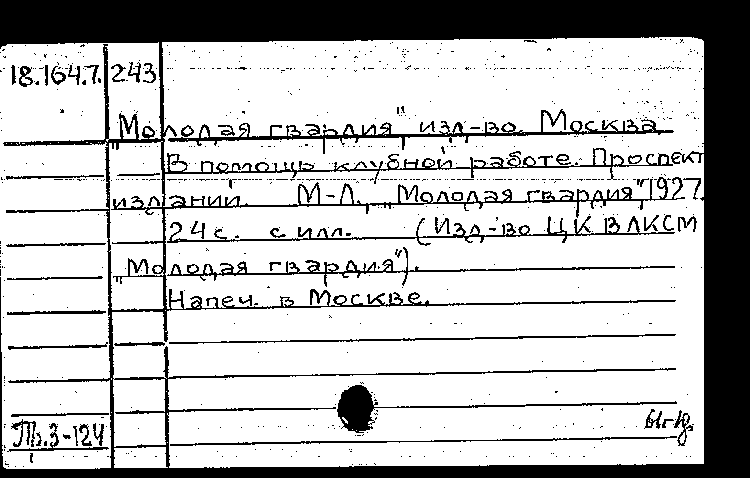 18.164.7. 243
"Молодая гвардия", изд-во. Москва
В помощь клубной работе. Проспект
изданий. М-Л., "Молодая гвардия", 1927.
24 с. с илл. (Изд-во ЦК ВЛКСМ
"Молодая гвардия").
Напеч. в Москве.
Пр.3-124